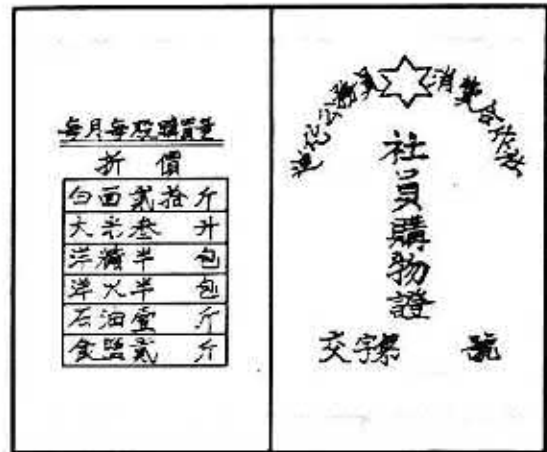 消費合作社
社員購物證
交字第 號
每月每股購買量
折價
白面貳拾斤
大米叁 升
洋燭半 包
洋火半 包
石油壹 斤
食鹽貳 斤